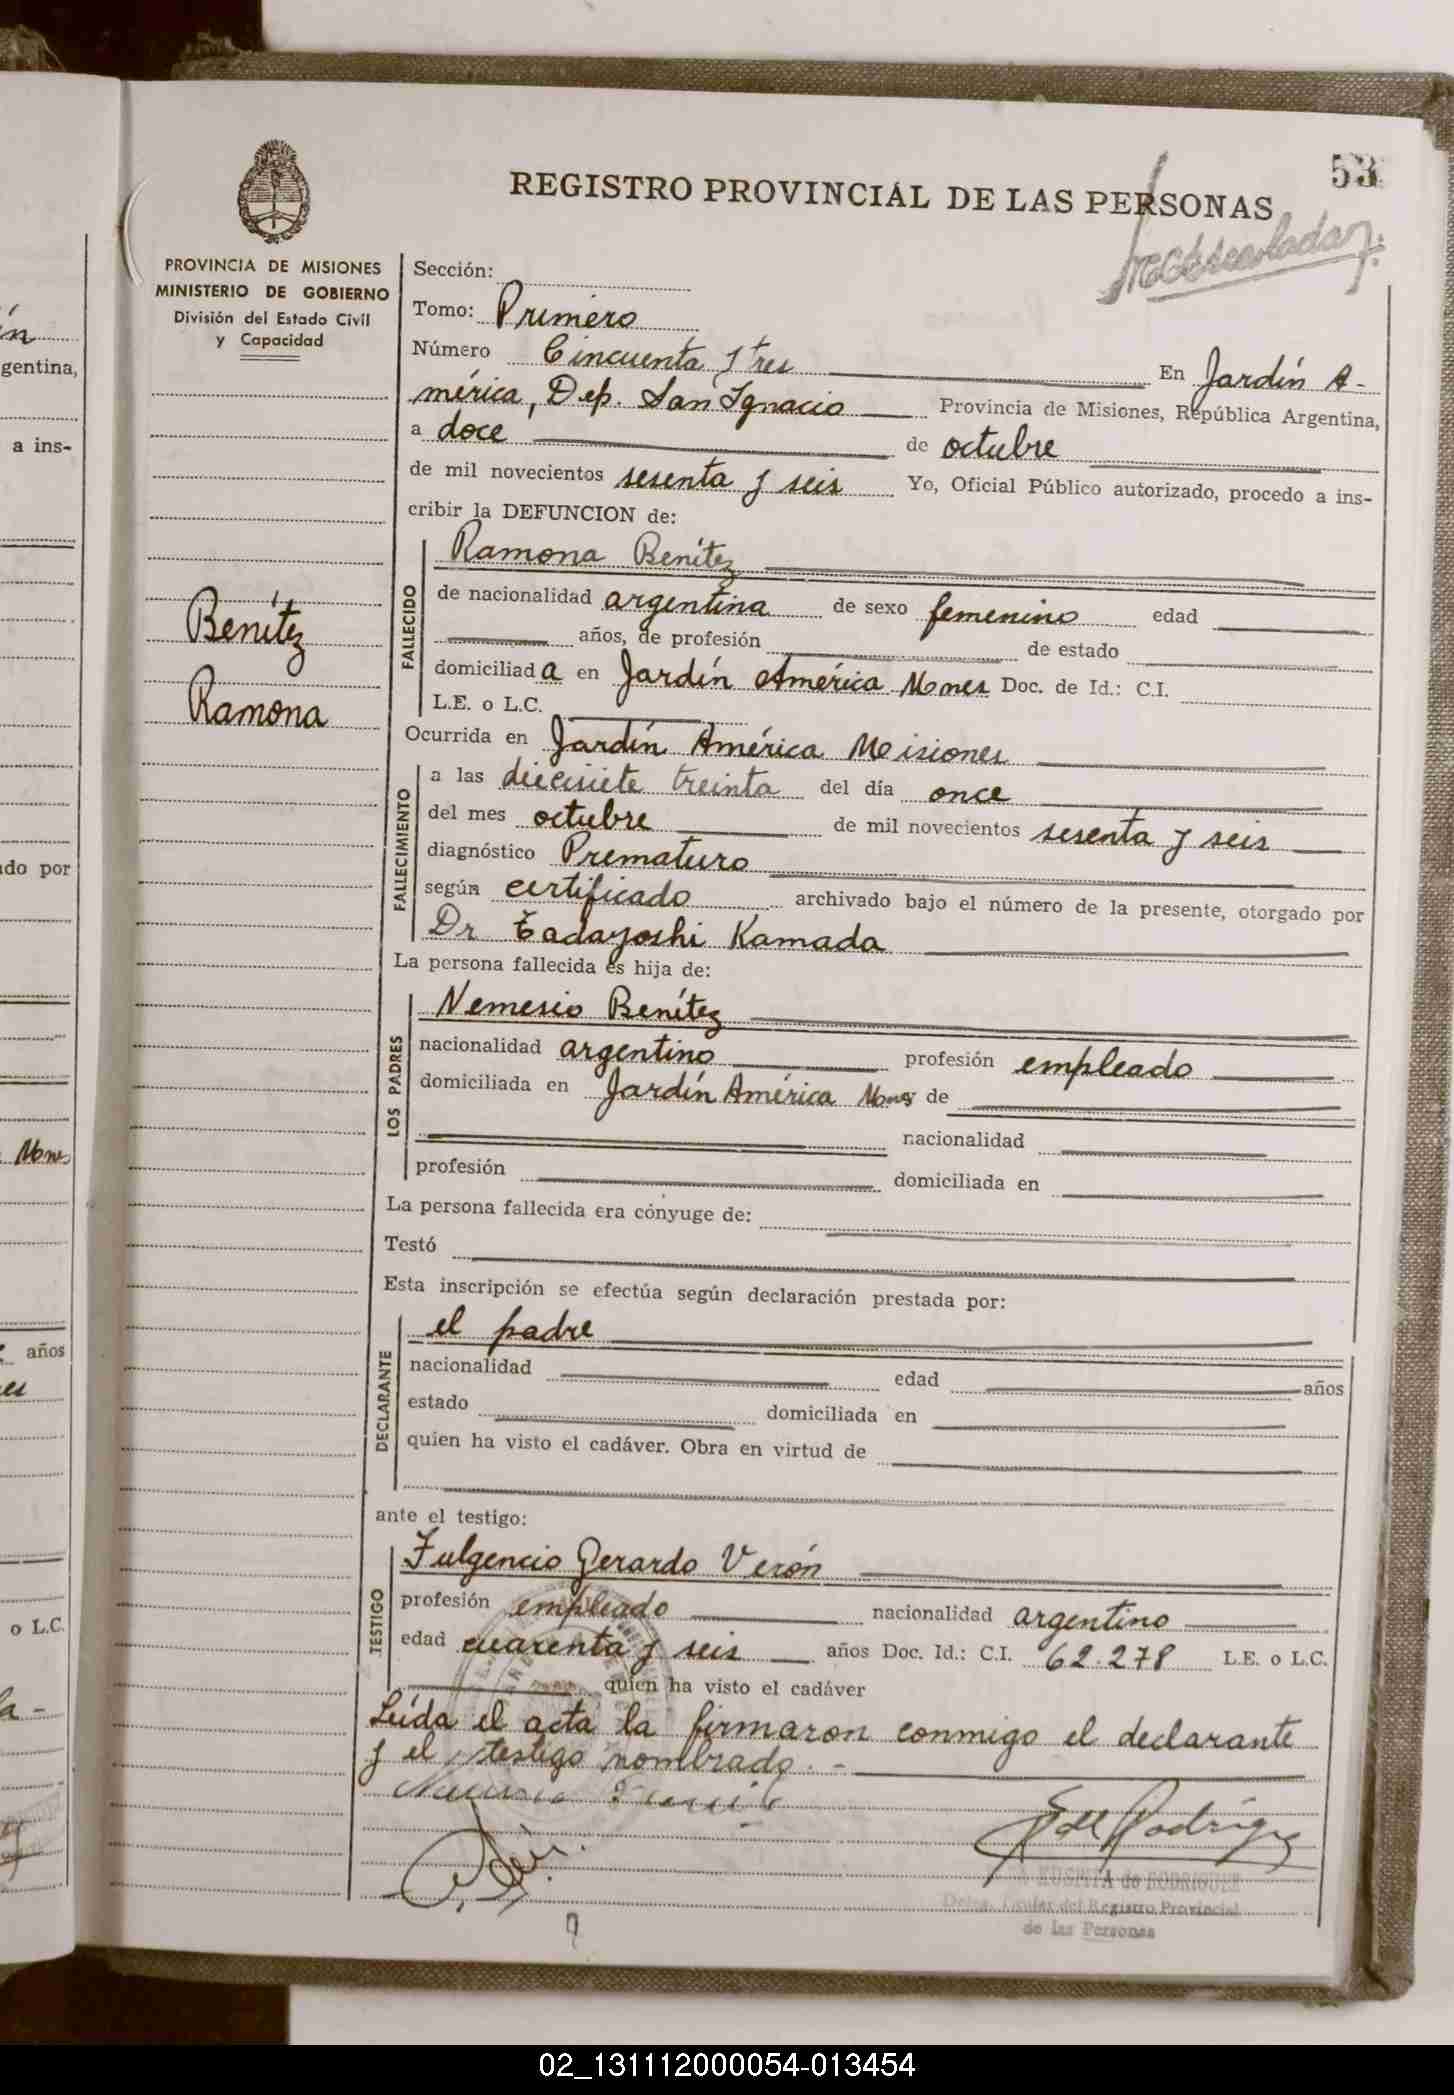 53
REGISTRO PROVINCIAL DE LAS PERSONAS
PROVINCIA DE MISIONES
MINISTERIO DE GOBIERNO
División del Estado Civil
y Capacidad
Benítez
Ramona
Sección:
Tomo: Primero
Número Cincuenta y tres En Jardín A-
mérica, Dep. San Ignacio Provincia de Misiones, República Argentina,
a doce de octubre
de mil novecientos sesenta y seis Yo, Oficial Público autorizado, procedo a ins-
cribir la DEFUNCION de:
FALLECIDO
Ramona Benítez
de nacionalidad argentina de sexo femenino edad
años, de profesión de estado
domiciliada en Jardín América Mones Doc. de Id.: C.I.
L.E. o L.C.
Ocurrida en Jardín América Misiones
FALLECIMIENTO
a las diecisiete treinta del día once
del mes octubre de mil novecientos sesenta y seis
diagnóstico Prematuro
según certificado archivado bajo el número de la presente, otorgado por
Dr Tadayoshi Kamada
La persona fallecida es hija de:
LOS PADRES
Nemesio Benítez
nacionalidad argentino profesión empleado
domiciliada en Jardín América Mones de
nacionalidad
profesión domiciliada en
La persona fallecida era cónyuge de:
Testó
Esta inscripción se efectúa según declaración prestada por:
DECLARANTE
el padre
nacionalidad edad años
estado domiciliada en
quien ha visto el cadáver. Obra en virtud de
ante el testigo:
TESTIGO
Fulgencio Gerardo Verón
profesión empleado nacionalidad argentino
edad cuarenta y seis años Doc. Id.: C.I. 62.278 L.E. o L.C.
quien ha visto el cadáver
Leída el acta la firmaron conmigo el declarante
y el testigo nombrado. -
de RODRIGUEZ
Deleg. Titular del Registro Provincial
de las Personas
gentina,
a ins-
do por
Mones
años
o L.C.
02_131112000054-013454